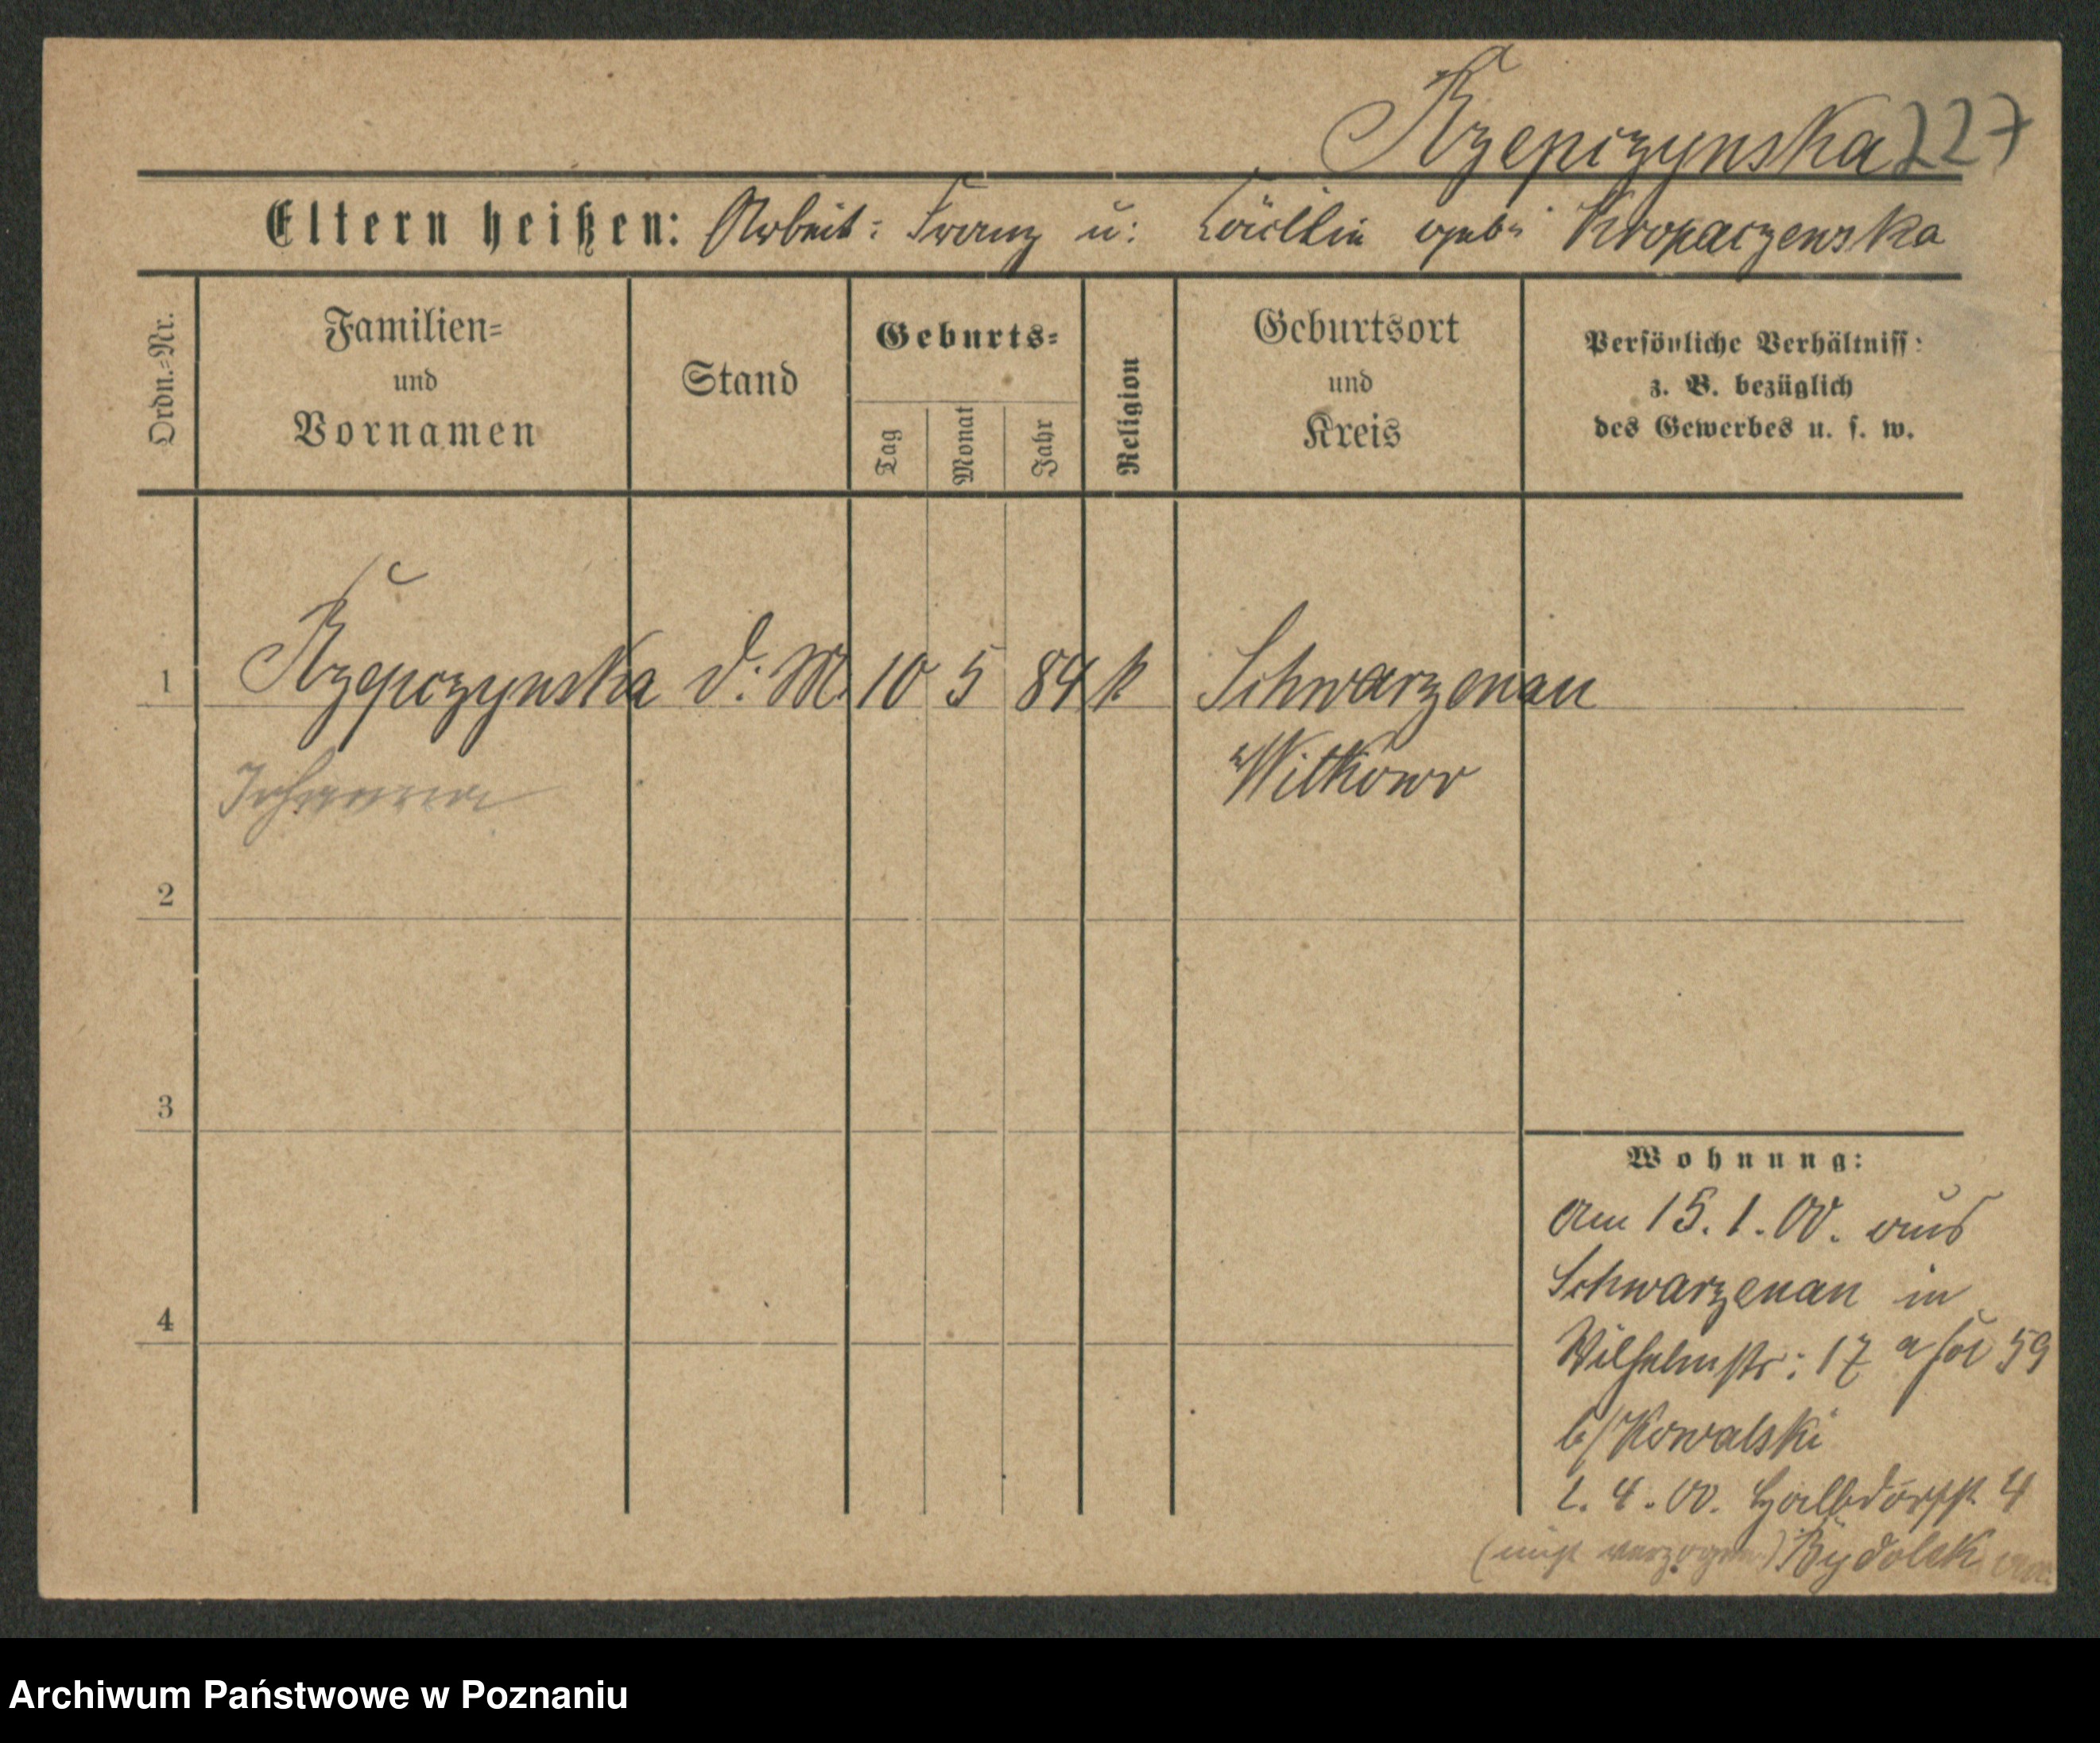 Rzepczynska 227
Eltern heißen: Arbeit: Franz u: Cäcilie geb: Kropaczewska
Ordn.-Nr.
Familien-
und
Vornamen
Stand
Geburts-
Tag
Monat
Jahr
Religion
Geburtsort
und
Kreis
Persönliche Verhältniss:
z. B. bezüglich
des Gewerbes u. s. w.
1 Rzepczynska d. M. 10 5 84 k Schwarzenau
Johanna Witkowo
2
3
4
Wohnung:
am 15. 1. 00. aus
Schwarzenau in
Wilhelmstr: 17 a
b/ Kowalski
2. 4. 00. Halbdorfst. 4
verzogen)
Archiwum Państwowe w Poznaniu